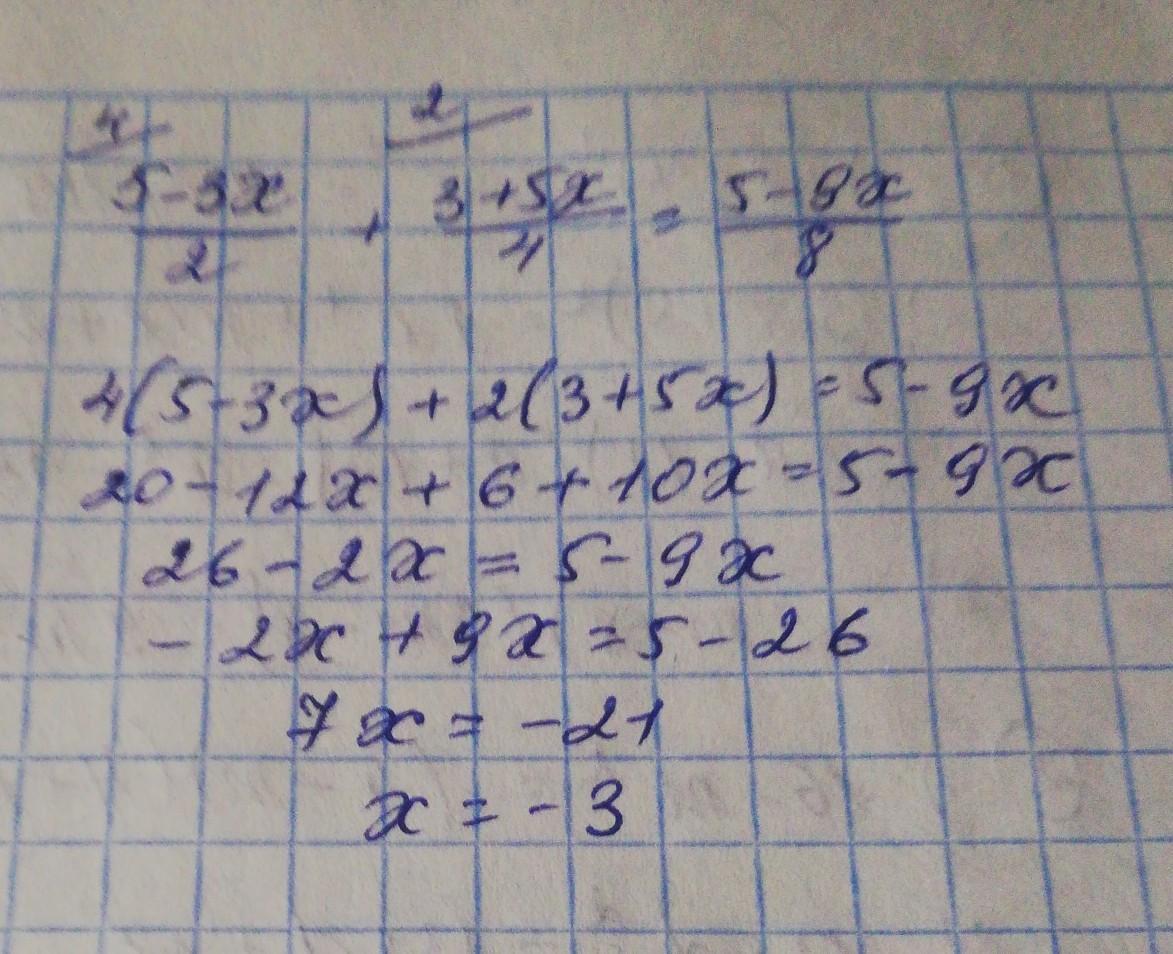 4 2
5-3x/2 + 3+5x/4 = 5-9x/8
4(5-3x)+2(3+5x)=5-9x
20-12x+6+10x=5-9x
26-2x=5-9x
-2x+9x=5-26
7x=-21
x=-3